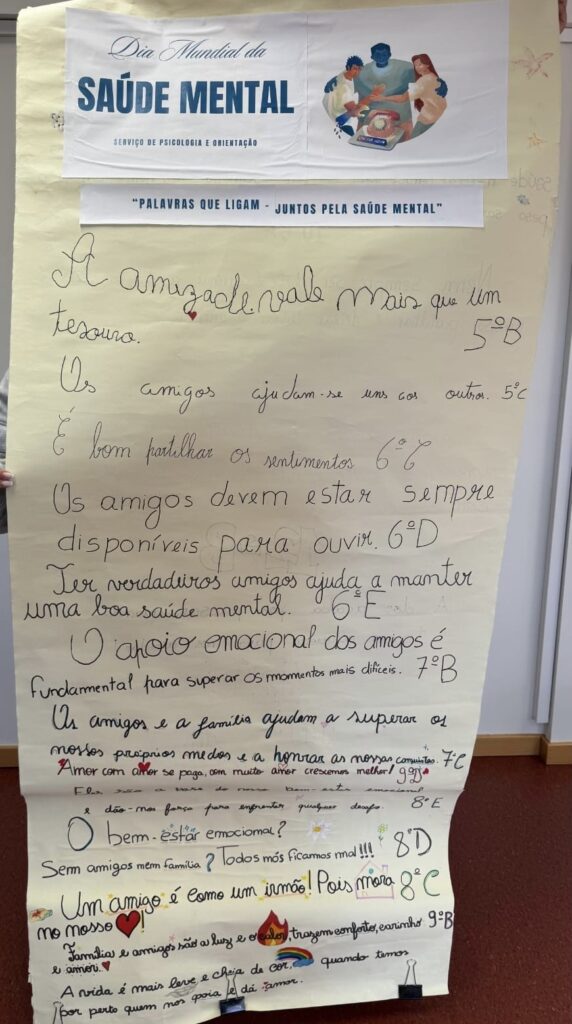 Dia Mundial da
SAÚDE MENTAL
SERVIÇO DE PSICOLOGIA E ORIENTAÇÃO
"PALAVRAS QUE LIGAM - JUNTOS PELA SAÚDE MENTAL"
A amizade vale mais que um
tesouro. 5ºB
Os amigos ajudam-se uns aos outros. 5ºC
É bom partilhar os sentimentos 6ºC
Os amigos devem estar sempre
disponíveis para ouvir. 6ºD
Ter verdadeiros amigos ajuda a manter
uma boa saúde mental. 6ºE
O apoio emocional dos amigos é
fundamental para superar os momentos mais difíceis. 7ºB
Os amigos e a família ajudam a superar os
nossos próprios medos e a honrar as nossas conquistas. 7ºC
Amor com amor se paga, com muito amor crescemos melhor! 9ºD
e dão-nos força para enfrentar qualquer desafio. 8ºE
O bem-estar emocional?
Sem amigos nem família? Todos nós ficamos mal!!! 8ºD
Um amigo é como um irmão! Pois mora 8ºC
no nosso
Família e amigos são a luz e o calor, trazem conforto, carinho 9ºB
e amor.
A vida é mais leve e cheia de cor, quando temos
por perto quem nos apoia e dá amor.